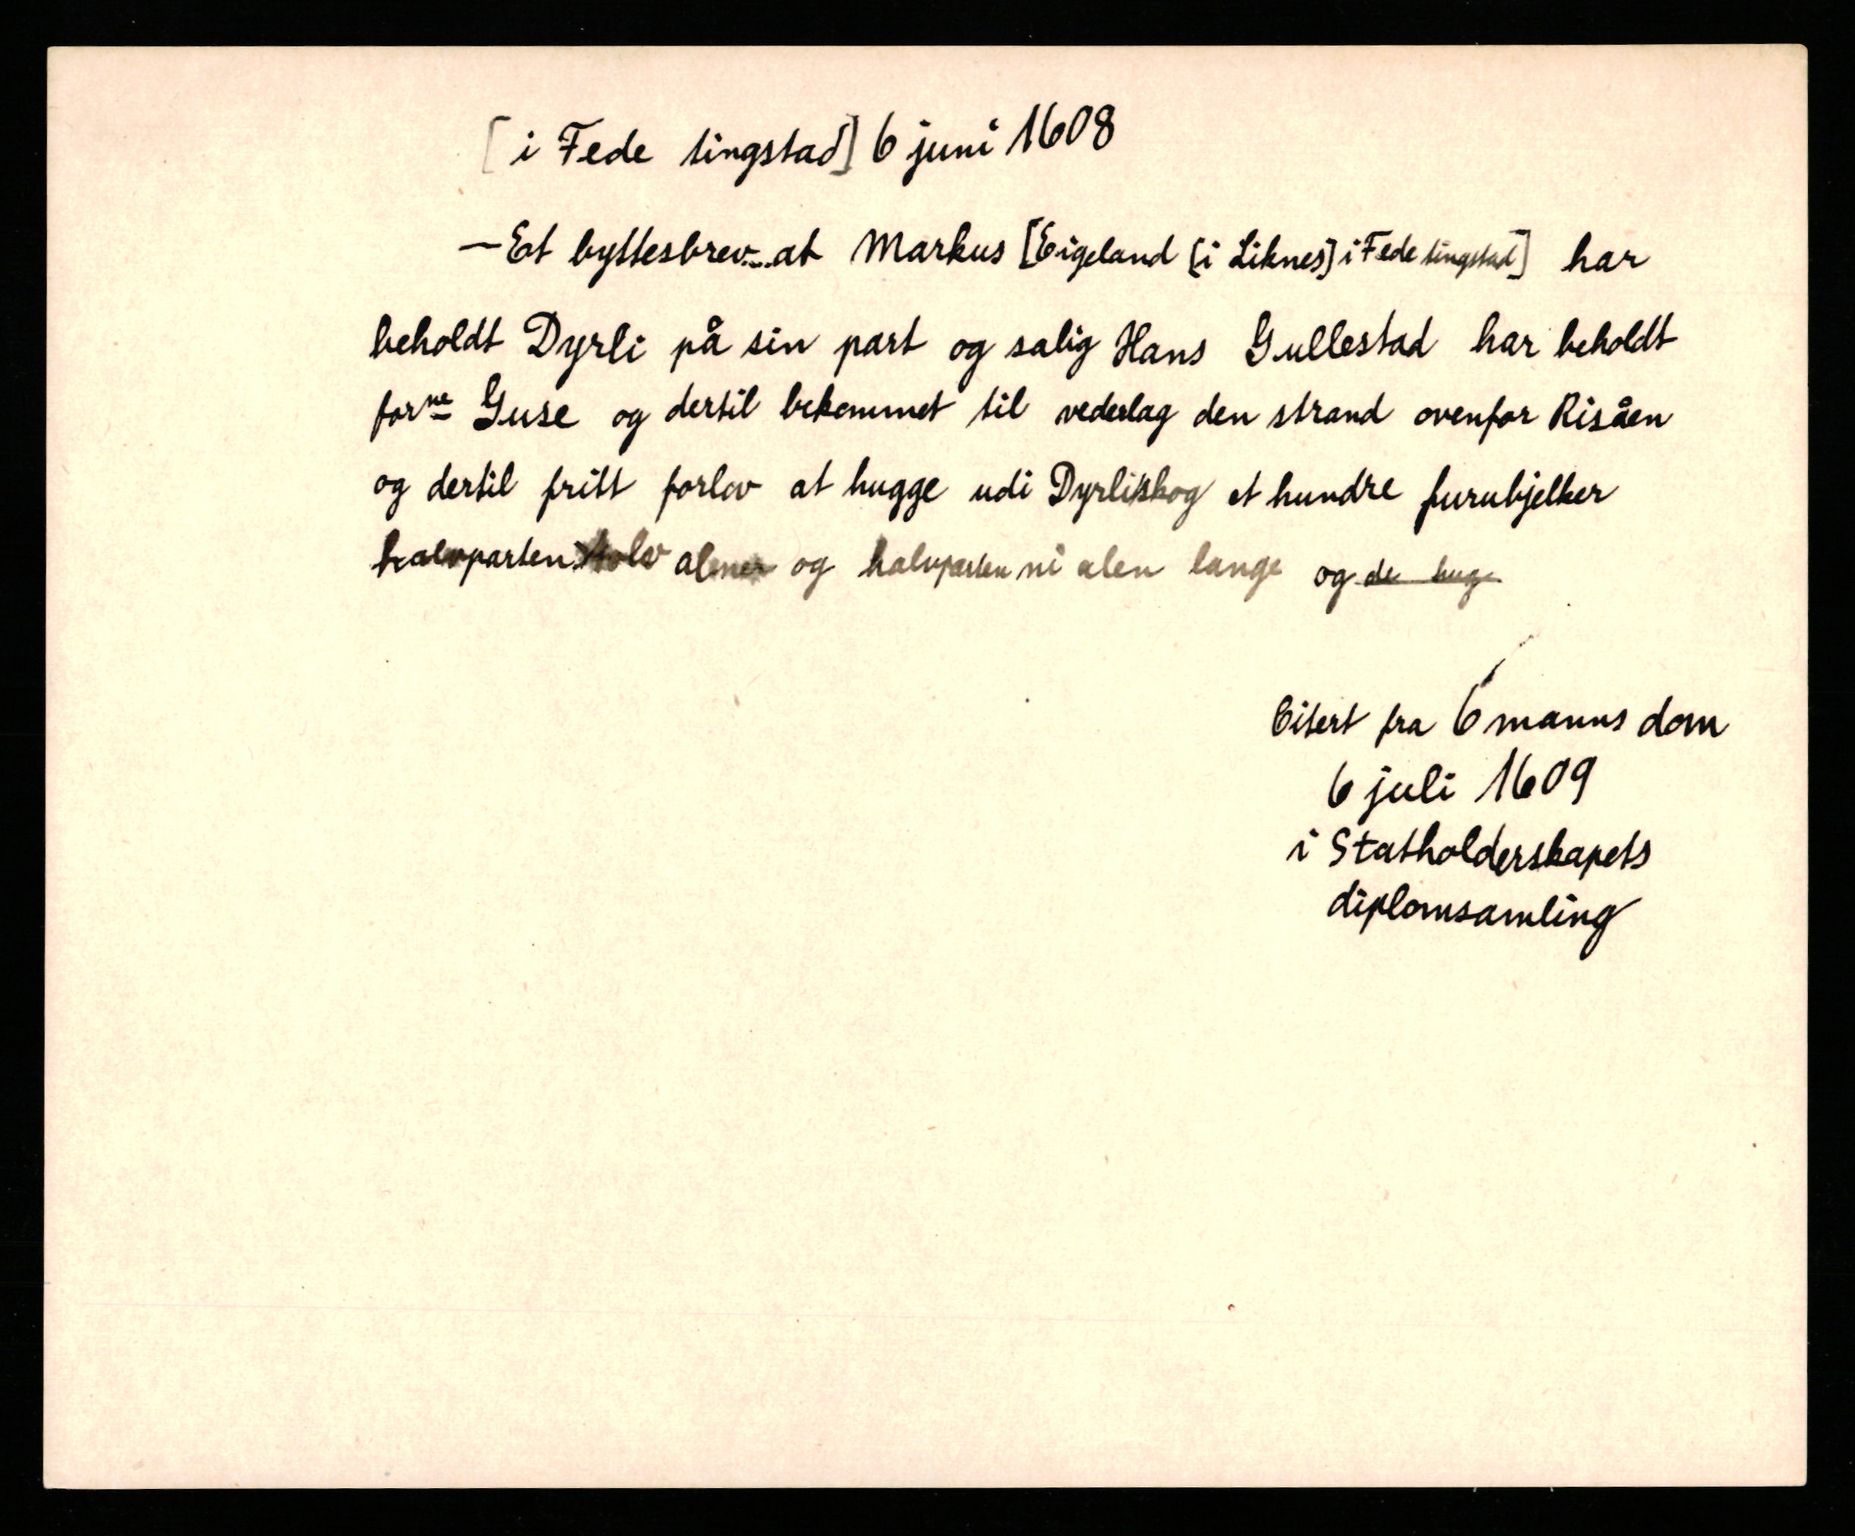 [i Fede tingstad] 6 juni 1608
— Et byttesbrev... at Markus [Eigeland [i Liknes] i Fede tingstad] har
beholdt Dyrli på sin part og salig Hans Gullestad har beholdt
forne Guse og dertil bekommet til vederlag den strand ovenfor Risåen
og dertil fritt forlov at hugge udi Dyrliskog et hundre furubjelker
halvparten tolv alner og halvparten ni alen lange og de huge
Citert fra 6 manns dom
6 juli 1609
i Statholderskapets
diplomsamling